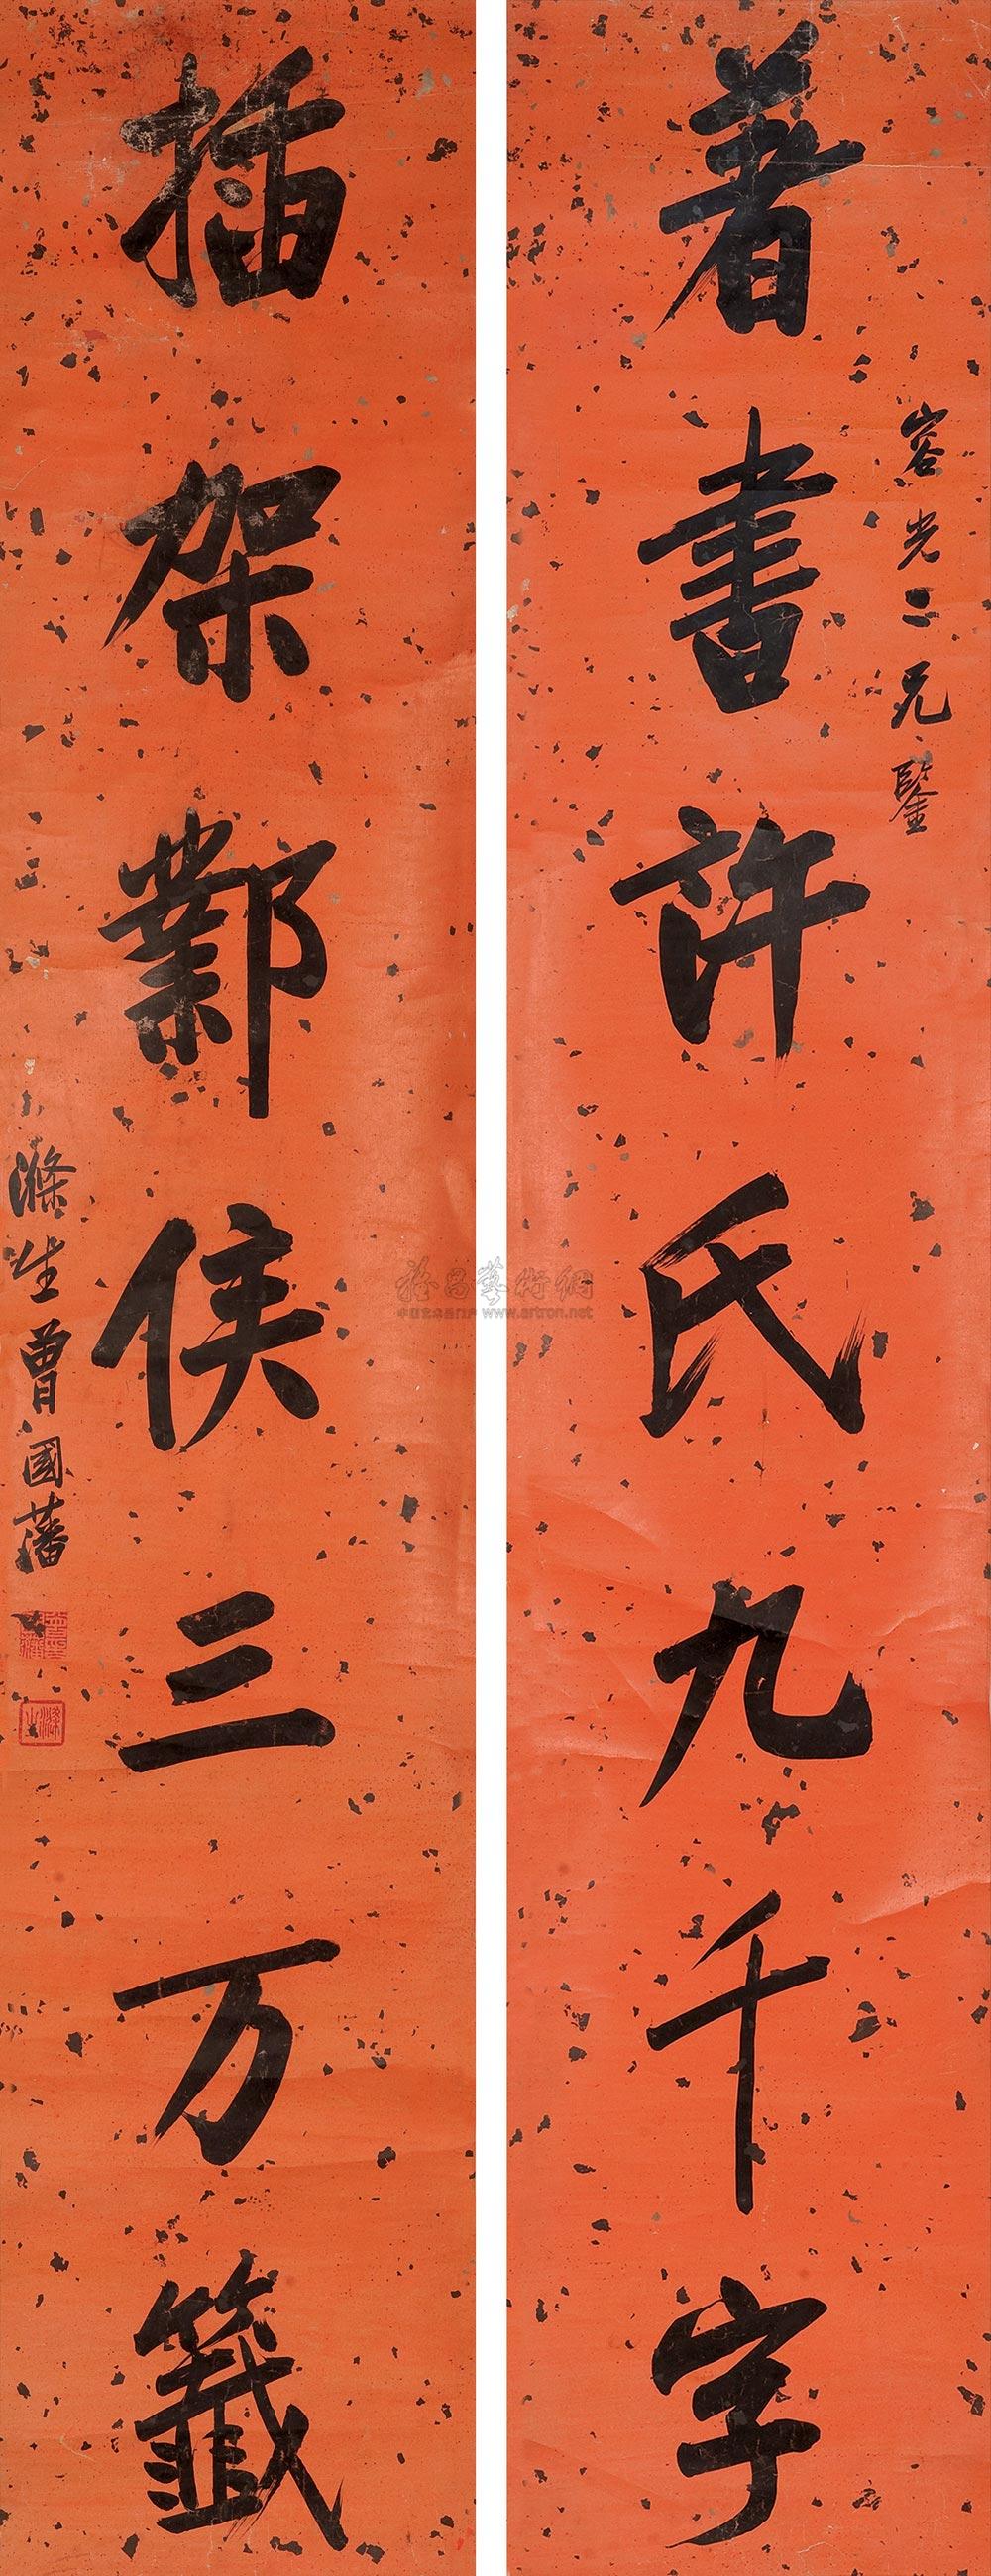 容光二兄鑒
著書許氏九千字
插架鄴侯三万籤
滌生曾國藩
雅昌藝術網
www.artron.net